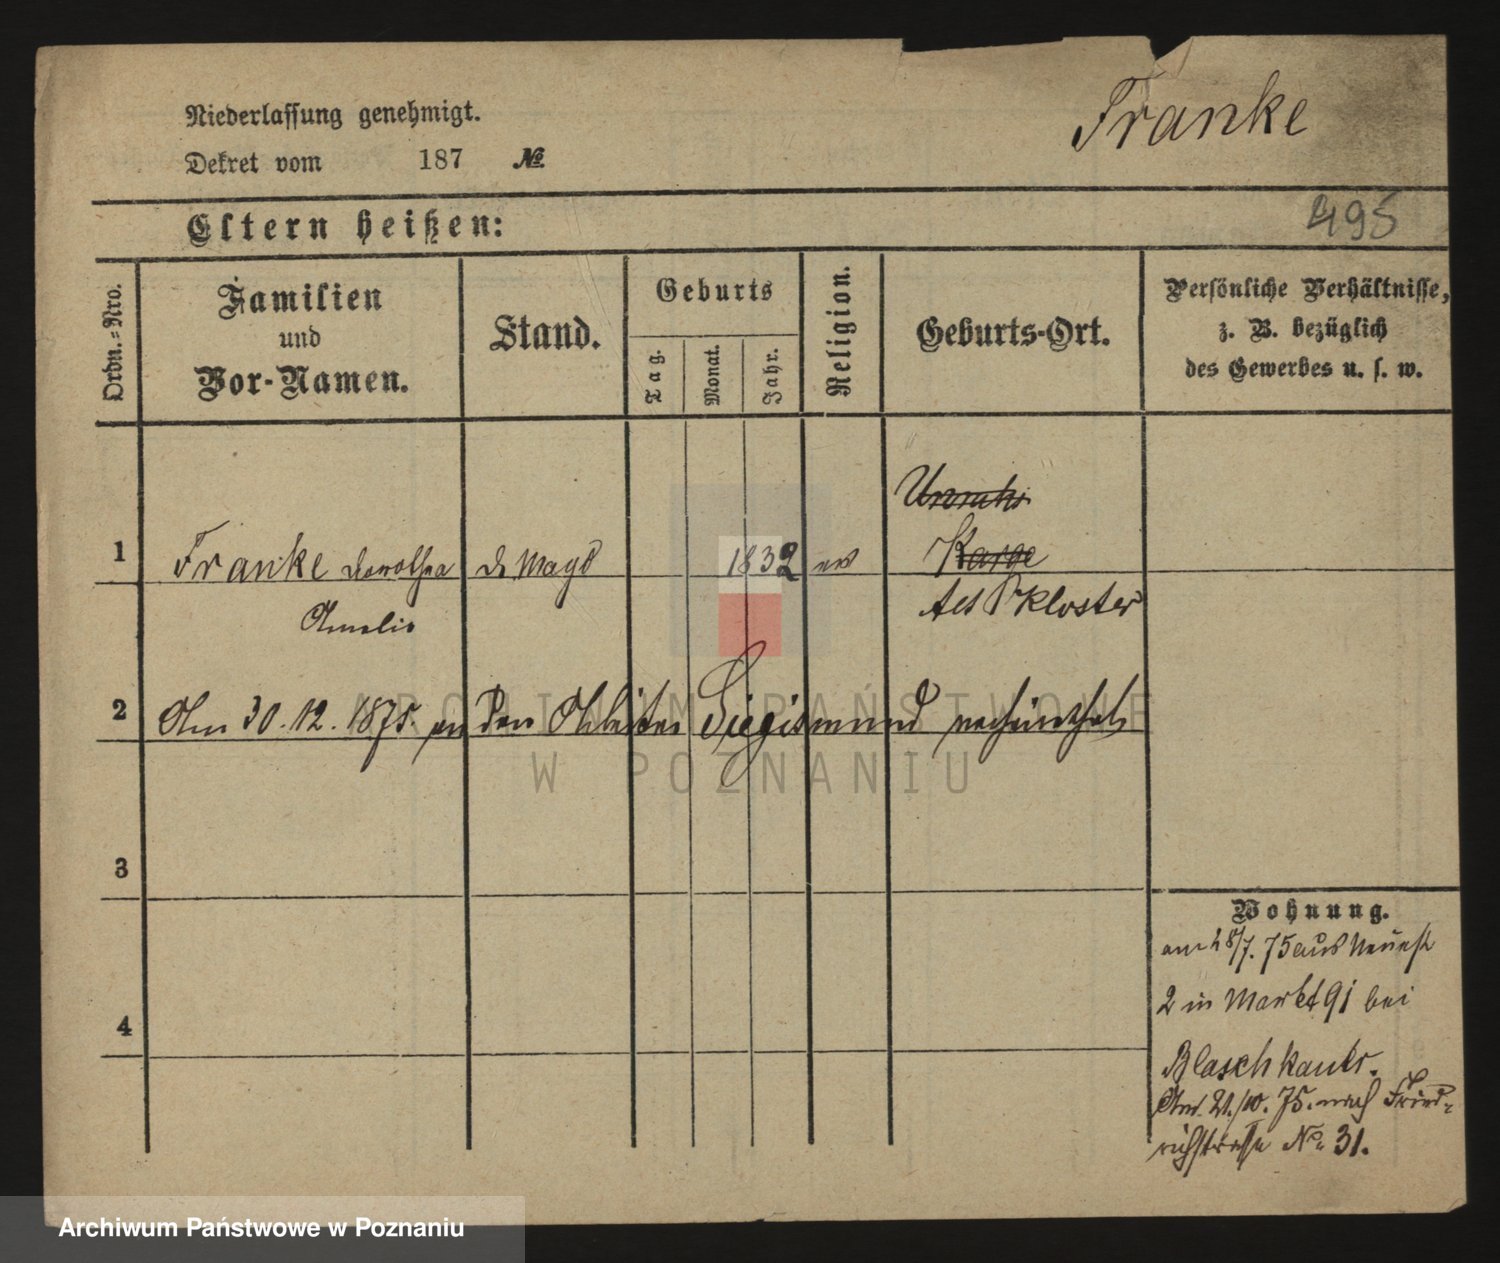 Niederlassung genehmigt.
Dekret vom 187 №
Franke
495
Eltern heißen:
Ordn.=Nro.
Familien
und
Vor-Namen.
Stand.
Geburts
Tag.
Monat.
Jahr.
Religion.
Geburts-Ort.
Persönliche Verhältnisse,
z. B. bezüglich
des Gewerbes u. s. w.
1
Franke Dorothea
Amalie
d. Magd
1832
ev
Karge
Alt Kloster
2
Am 30.12.1875. an den Arbeiter Siegismund verheirathet
3
4
Wohnung.
am 28/7. 75 aus Neuest
2 in Markt 91 bei
Blasch
Am 21./10. 75. nach Fried=
richstrasse No 31.
ARCHIWUM PAŃSTWOWE
W POZNANIU
Archiwum Państwowe w Poznaniu